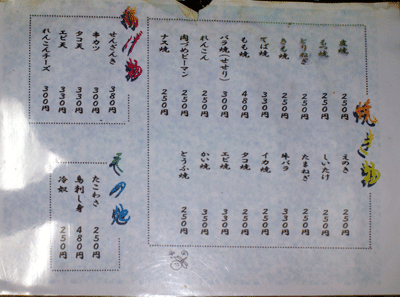 焼き物
皮焼 250円
もつ焼 250円
とりねぎ 250円
きも焼 250円
てば焼 330円
もも焼 480円
バラ焼(せせり) 330円
れんこん 250円
肉づめピーマン 250円
ナス焼 250円
えのき 250円
しいたけ 250円
たまねぎ 250円
牛バラ 330円
イカ焼 250円
タコ焼 330円
エビ焼 330円
かい焼 350円
とうふ焼 250円
揚げ物
せんざんき 380円
牛カツ 300円
タコ天 330円
エビ天 330円
れんこんチーズ 300円
その他
たこわさ 250円
鳥刺し身 480円
冷奴 250円